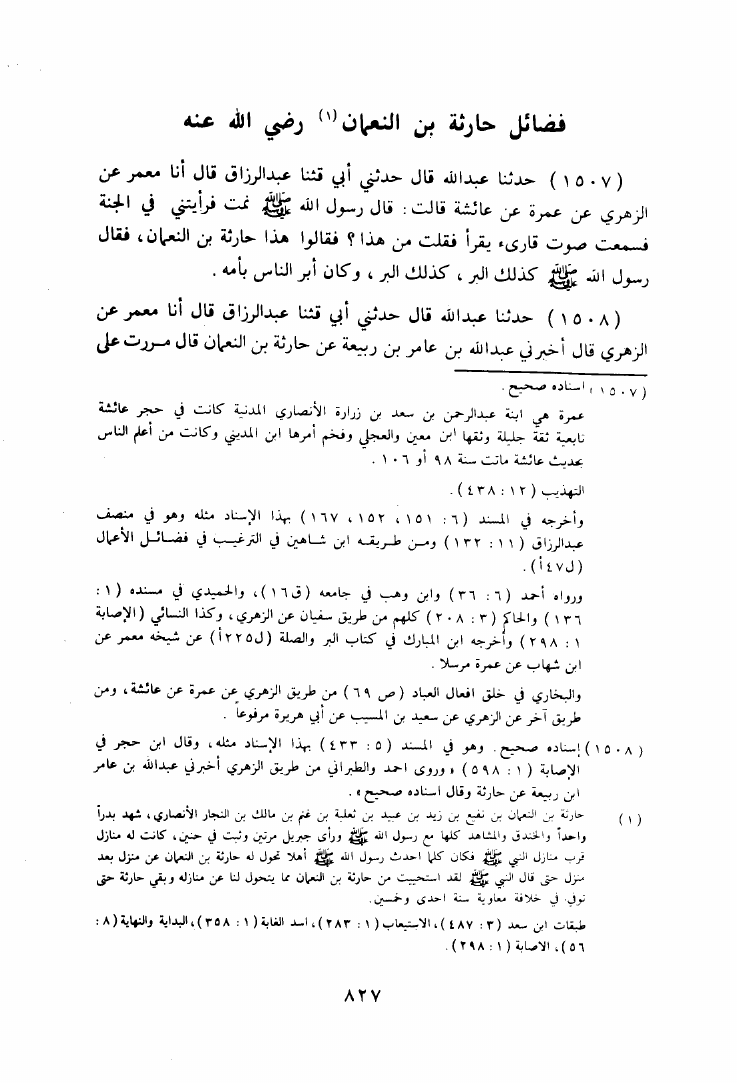 فضائل حارثة بن النعمان(١) رضي الله عنه
(١٥٠٧) حدثنا عبدالله قال حدثني أبي قثنا عبدالرزاق قال أنا معمر عن
الزهري عن عمرة عن عائشة قالت: قال رسول الله ﷺ نمت فرأيتني في الجنة
فسمعت صوت قارىء يقرأ فقلت من هذا؟ فقالوا هذا حارثة بن النعمان، فقال
رسول الله ﷺ كذلك البر، كذلك البر، وكان أبر الناس بأمه.
(١٥٠٨) حدثنا عبدالله قال حدثني أبي قثنا عبدالرزاق قال أنا معمر عن
الزهري قال أخبرني عبدالله بن عامر بن ربيعة عن حارثة بن النعمان قال مررت على
(١٥٠٧) اسناده صحيح.
عمرة هي ابنة عبدالرحمن بن سعد بن زرارة الأنصاري المدنية كانت في حجر عائشة
تابعية ثقة جليلة وثقها ابن معين والعجلي وفخم أمرها ابن المديني وكانت من أعلم الناس
بحديث عائشة ماتت سنة ٩٨ أو ١٠٦.
التهذيب (١٢: ٤٣٨).
وأخرجه في المسند (٦: ١٥١، ١٥٢، ١٦٧) بهذا الإسناد مثله وهو في منصف
عبدالرزاق (١١: ١٣٢) ومن طريقه ابن شاهين في الترغيب في فضائل الأعمال
(ل٤٧أ).
ورواه أحمد (٦: ٣٦) وابن وهب في جامعه (ق١٦)، والحميدي في مسنده (١:
١٣٦) والحاكم (٣: ٢٠٨) كلهم من طريق سفيان عن الزهري، وكذا النسائي (الإصابة
١: ٢٩٨) وأخرجه ابن المبارك في كتاب البر والصلة (ل٢٢٥أ) عن شيخه معمر عن
ابن شهاب عن عمرة مرسلا.
والبخاري في خلق افعال العباد (ص ٦٩) من طريق الزهري عن عمرة عن عائشة، ومن
طريق آخر عن الزهري عن سعيد بن المسيب عن أبي هريرة مرفوعاً.
(١٥٠٨) إسناده صحيح. وهو في المسند (٥: ٤٣٣) بهذا الإسناد مثله، وقال ابن حجر في
الإصابة (١: ٥٩٨) «وروى احمد والطبراني من طريق الزهري أخبرني عبدالله بن عامر
ابن ربيعة عن حارثة وقال اسناده صحيح».
(١) حارثة بن النعمان بن نفيع بن زيد بن عبيد بن ثعلبة بن غنم بن مالك بن النجار الأنصاري، شهد بدراً
واحداً والخندق والمشاهد كلها مع رسول الله ﷺ ورأى جبريل مرتين وثبت في حنين، كانت له منازل
قرب منازل النبي ﷺ فكان كلما احدث رسول الله ﷺ أهلا تحول له حارثة بن النعمان عن منزل بعد
منزل حتى قال النبي ﷺ لقد استحييت من حارثة بن النعمان مما يتحول لنا عن منازله وبقي حارثة حتى
توفي في خلافة معاوية سنة احدى وخمسين.
طبقات ابن سعد (٣: ٤٨٧)، الاستيعاب (١: ٢٨٣)، اسد الغابة (١: ٣٥٨)، البداية والنهاية (٨:
٥٦)، الاصابة (١: ٢٩٨).
٨٢٧